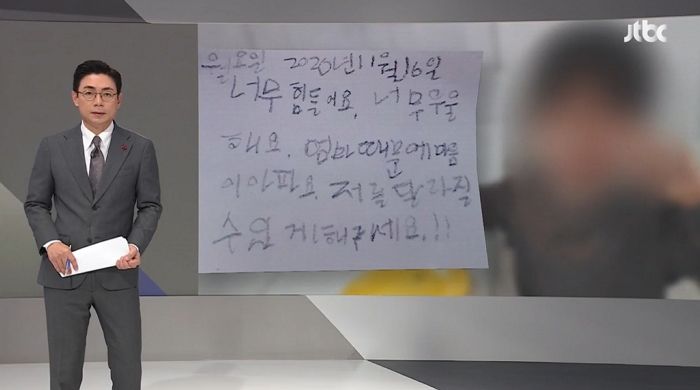 jtbc
월요일 2020년11월16일
너무 힘들어요. 너무우울
해요. 엄마때문에마음
이아파요. 저를달라질
수있게해주세요.!!